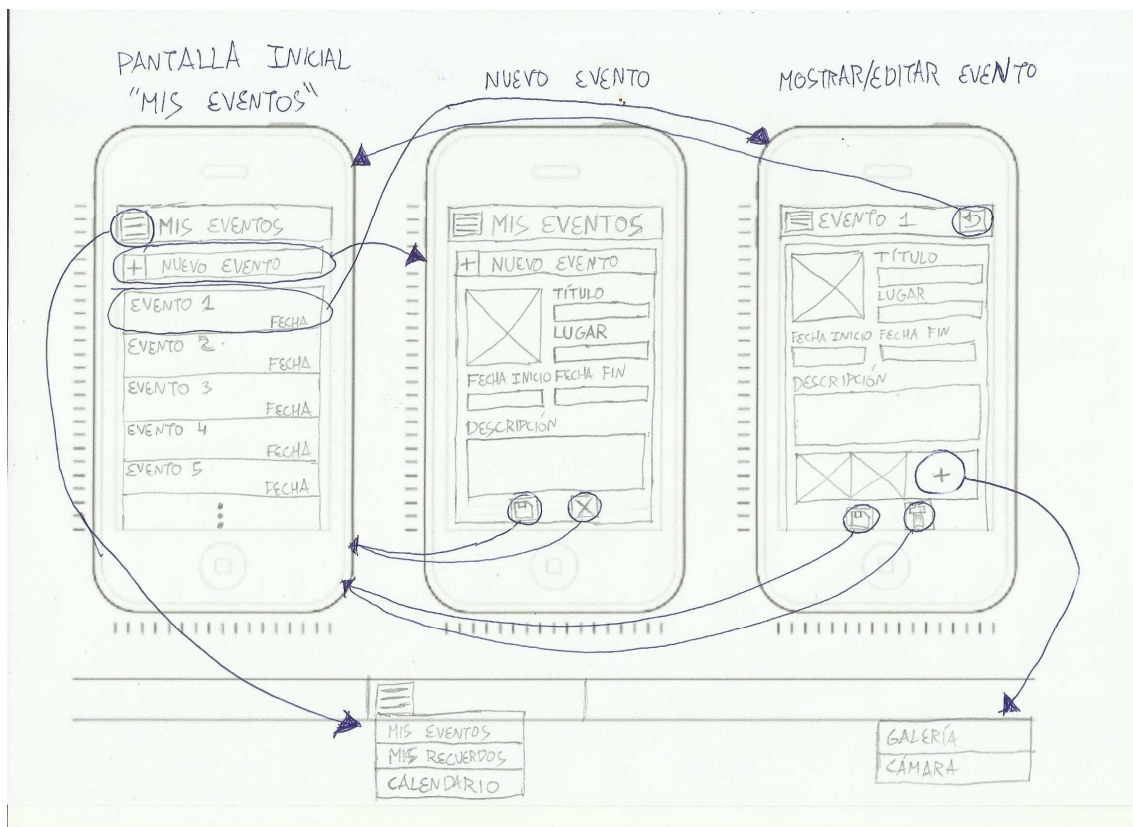 PANTALLA INICIAL
"MIS EVENTOS"
NUEVO EVENTO
MOSTRAR/EDITAR EVENTO
MIS EVENTOS
+ NUEVO EVENTO
EVENTO 1
FECHA
EVENTO 2
FECHA
EVENTO 3
FECHA
EVENTO 4
FECHA
EVENTO 5
FECHA
MIS EVENTOS
+ NUEVO EVENTO
TÍTULO
LUGAR
FECHA INICIO FECHA FIN
DESCRIPCIÓN
EVENTO 1
TÍTULO
LUGAR
FECHA INICIO FECHA FIN
DESCRIPCIÓN
+
MIS EVENTOS
MIS RECUERDOS
CALENDARIO
GALERÍA
CÁMARA